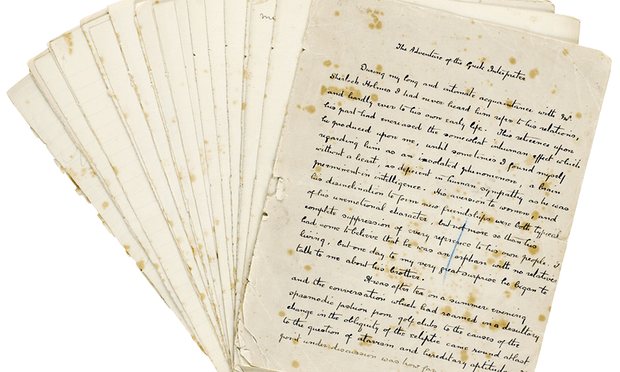 The Adventure of the Greek Interpreter
During my long and intimate acquaintance with Mr
Sherlock Holmes I had never heard him refer to his relations,
and hardly ever to his own early life. This reticence upon
his part had increased the somewhat inhuman effect which
he produced upon me, until sometimes I found myself
regarding him as an isolated phenomenon, a brain
without a heart, as deficient in human sympathy as he was
preeminent in intelligence. His aversion to women, and
his disinclination to form new friendships were both typical
of his unemotional character, but not more so than his
complete suppression of every reference to his own people. I
had come to believe that he was an orphan with no relatives
living, but one day to my very great surprise he began to
talk to me about his brother.
It was after tea on a summer evening
and the conversation which had roamed in a desultory
spasmodic fashion from golf clubs to the causes of the
change in the obliquity of the ecliptic came round at last
to the question of atavism and hereditary aptitudes. The
point under discussion was how far